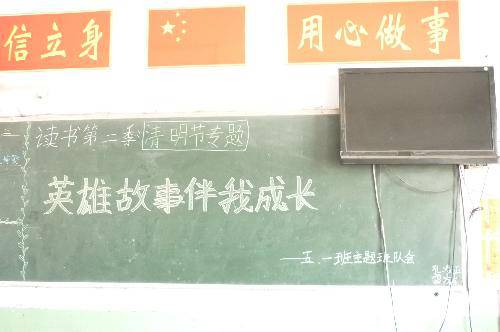 信立身
用心做事
读书第二季清明节专题
英雄故事伴我成长
——五.一班主题班队会